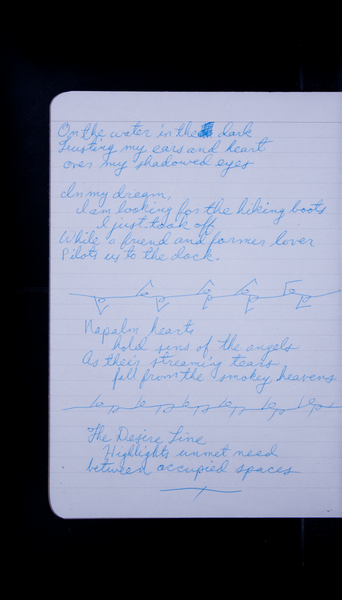 On the water in the dark
Trusting my ears and heart
over my shadowed eyes
In my dream,
I am looking for the hiking boots
I just took off
While a friend and former lover
Pilots us to the dock.
Napalm hearts
hold sins of the angels
As their streaming tears
fall from the smokey heavens
The Desire Line
Highlights unmet need
between occupied spaces